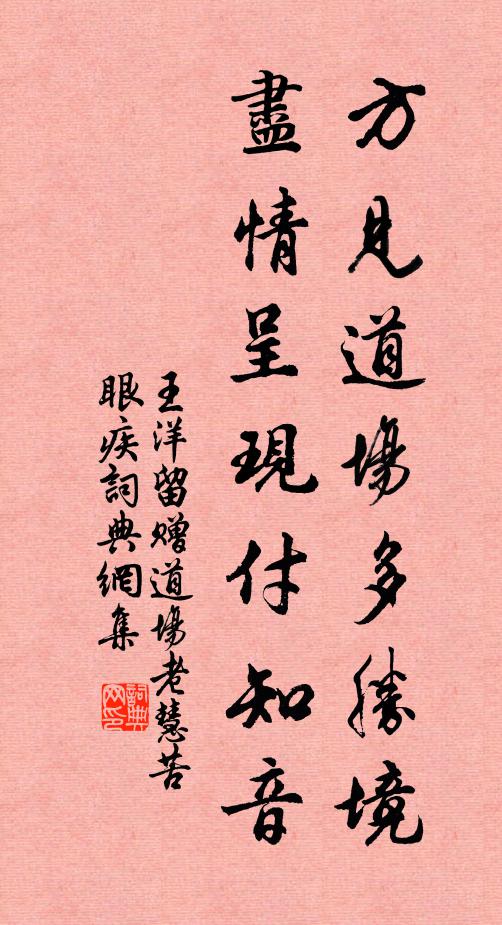 方見道場多勝境
盡情呈現付知音
王洋留贈道場老慧苦
眼疾詞典網集
詞典网印